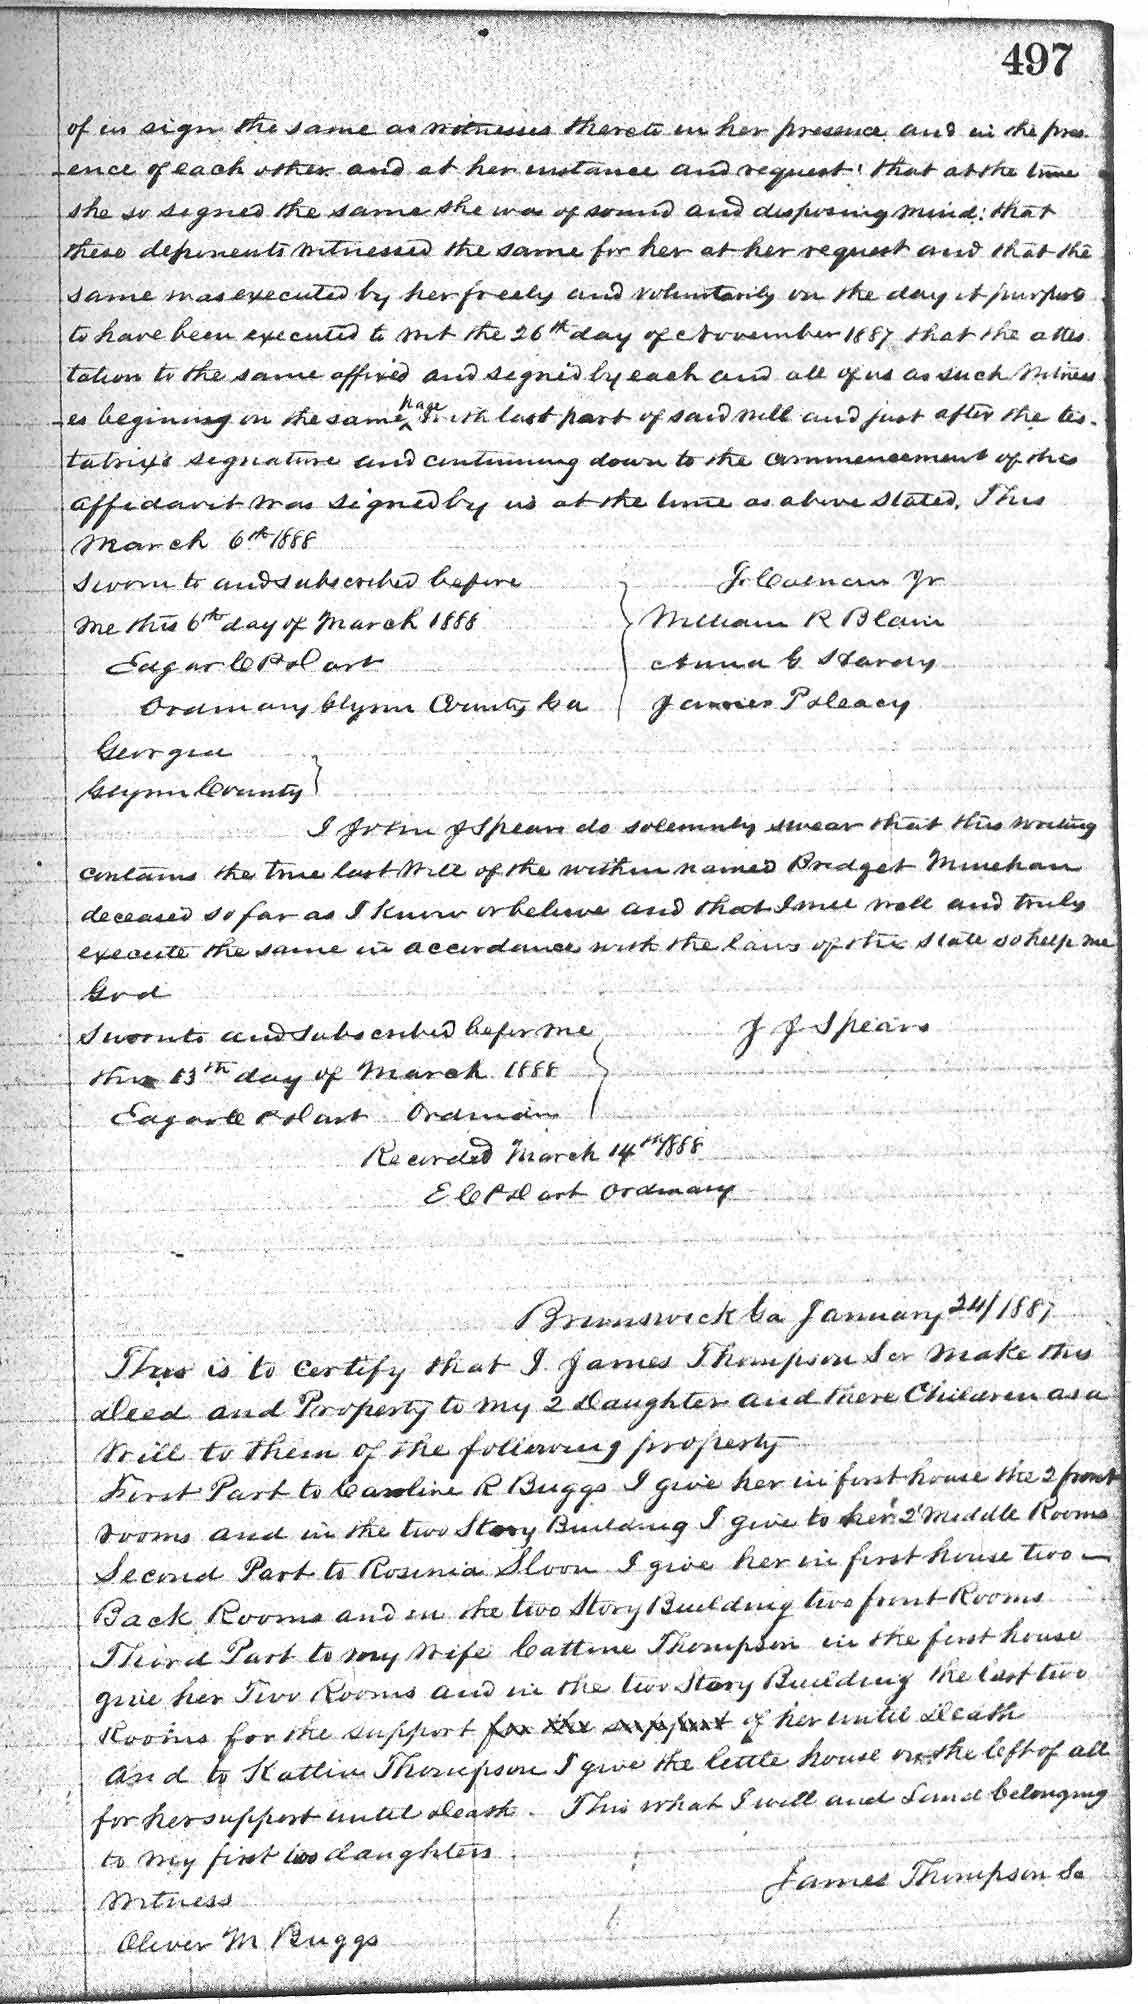 497
of us sign the same as witnesses thereto in her presence and in the pres-
ence of each other and at her instance and request; that at the time
she so signed the same she was of sound and disposing mind; that
these deponents witnessed the same for her at her request and that the
same was executed by her freely and voluntarily on the day it purports
to have been executed to wit the 26th day of November 1887 that the attes
tation to the same affixed and signed by each and all of us as such witness
es begining on the same page with last part of said will and just after the tes-
tatrix's signature and continuing down to the commencement of this
affidavit was signed by us at the time as above stated, This
March 6th 1888
Sworn to and subscribed before
me this 6th day of March 1888
Edgar C P Dart
Ordinary Glynn County Ga
J. Colman Jr
William R Blain
Anna G Hardy
James P Leacy
Georgia
Glynn County
I John J Spears do solemnly swear that this writing
contains the true last Will of the within named Bridget Minehan
deceased so far as I know or believe and that I will well and truly
execute the same in accordance with the laws of this State so help me
God
Sworn to and subscribed before me
this 13th day of March 1888
Edgar C P Dart Ordinary
J J Spears
Recorded March 14th 1888
E C P Dart Ordinary
Brunswick Ga January 24/1887
This is to certify that I James Thompson Ser Make this
Deed and Property to my 2 Daughter and there Children as a
Will to them of the following property
First Part to Caroline R Buggs I give her in first house the 2 front
rooms and in the two Story Building I give to her 2 Middle Rooms
Second Part to Rosinia Sloon I give her in first house two
Back Rooms and in the two Story Building two front Rooms
Third Part to my Wife Cattine Thompson in the first house
give her Two Rooms and in the two Story Building the last two
Rooms for the support for the support of her until Death
And to Katlin Thompson I give the little house on the left of all
for her support until Death. This what I will and Land belonging
to my first two daughters
James Thompson Se
Witness
Oliver M Buggs